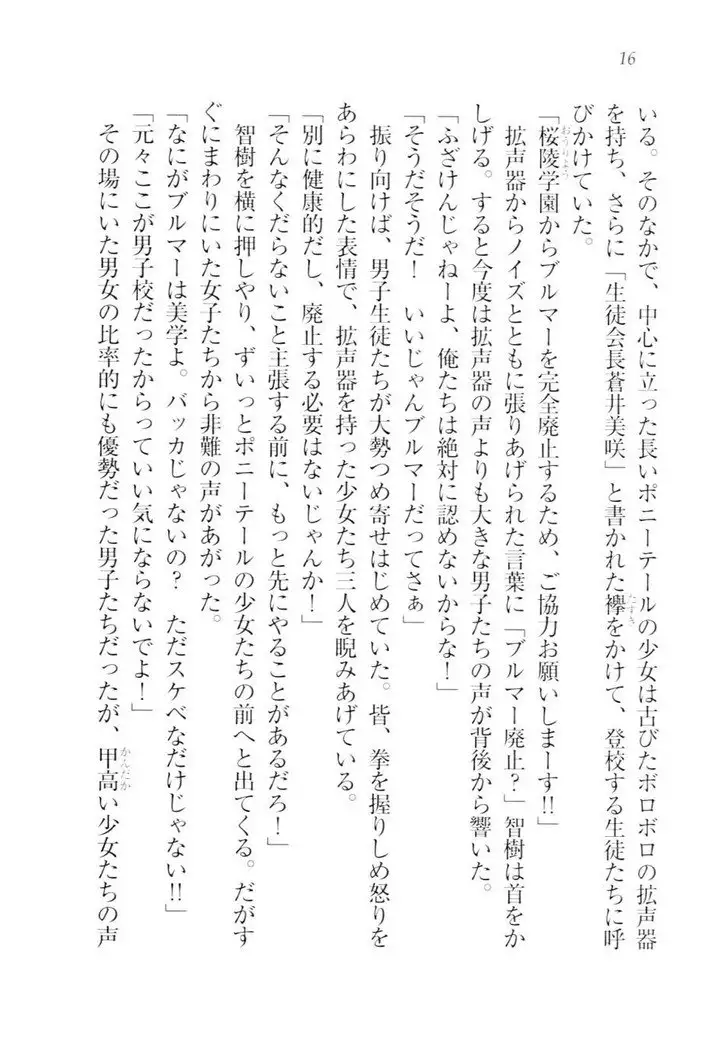 16
いる。そのなかで、中心に立った長いポニーテールの少女は古びたボロボロの拡声器
を持ち、さらに「生徒会長蒼井美咲」と書かれた襷をかけて、登校する生徒たちに呼
びかけていた。
「桜陵学園からブルマーを完全廃止するため、ご協力お願いしまーす!!」
拡声器からノイズとともに張りあげられた言葉に「ブルマー廃止？」智樹は首をか
しげる。すると今度は拡声器の声よりも大きな男子たちの声が背後から響いた。
「ふざけんじゃねーよ、俺たちは絶対に認めないからな！」
「そうだそうだ！　いいじゃんブルマーだってさぁ」
振り向けば、男子生徒たちが大勢つめ寄せはじめていた。皆、拳を握りしめ怒りを
あらわにした表情で、拡声器を持った少女たち三人を睨みあげている。
「別に健康的だし、廃止する必要はないじゃんか！」
「そんなくだらないこと主張する前に、もっと先にやることがあるだろ！」
智樹を横に押しやり、ずいっとポニーテールの少女たちの前へと出てくる。だがす
ぐにまわりにいた女子たちから非難の声があがった。
「なにがブルマーは美学よ。バッカじゃないの？　ただスケベなだけじゃない!!」
「元々ここが男子校だったからっていい気にならないでよ！」
その場にいた男女の比率的にも優勢だった男子たちだったが、甲高い少女たちの声
おうりょう
たすき
かんだか